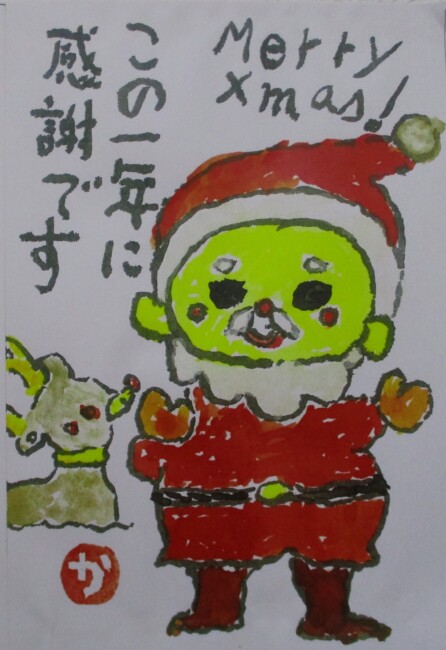 Merry
xmas!
この一年に
感謝です
か